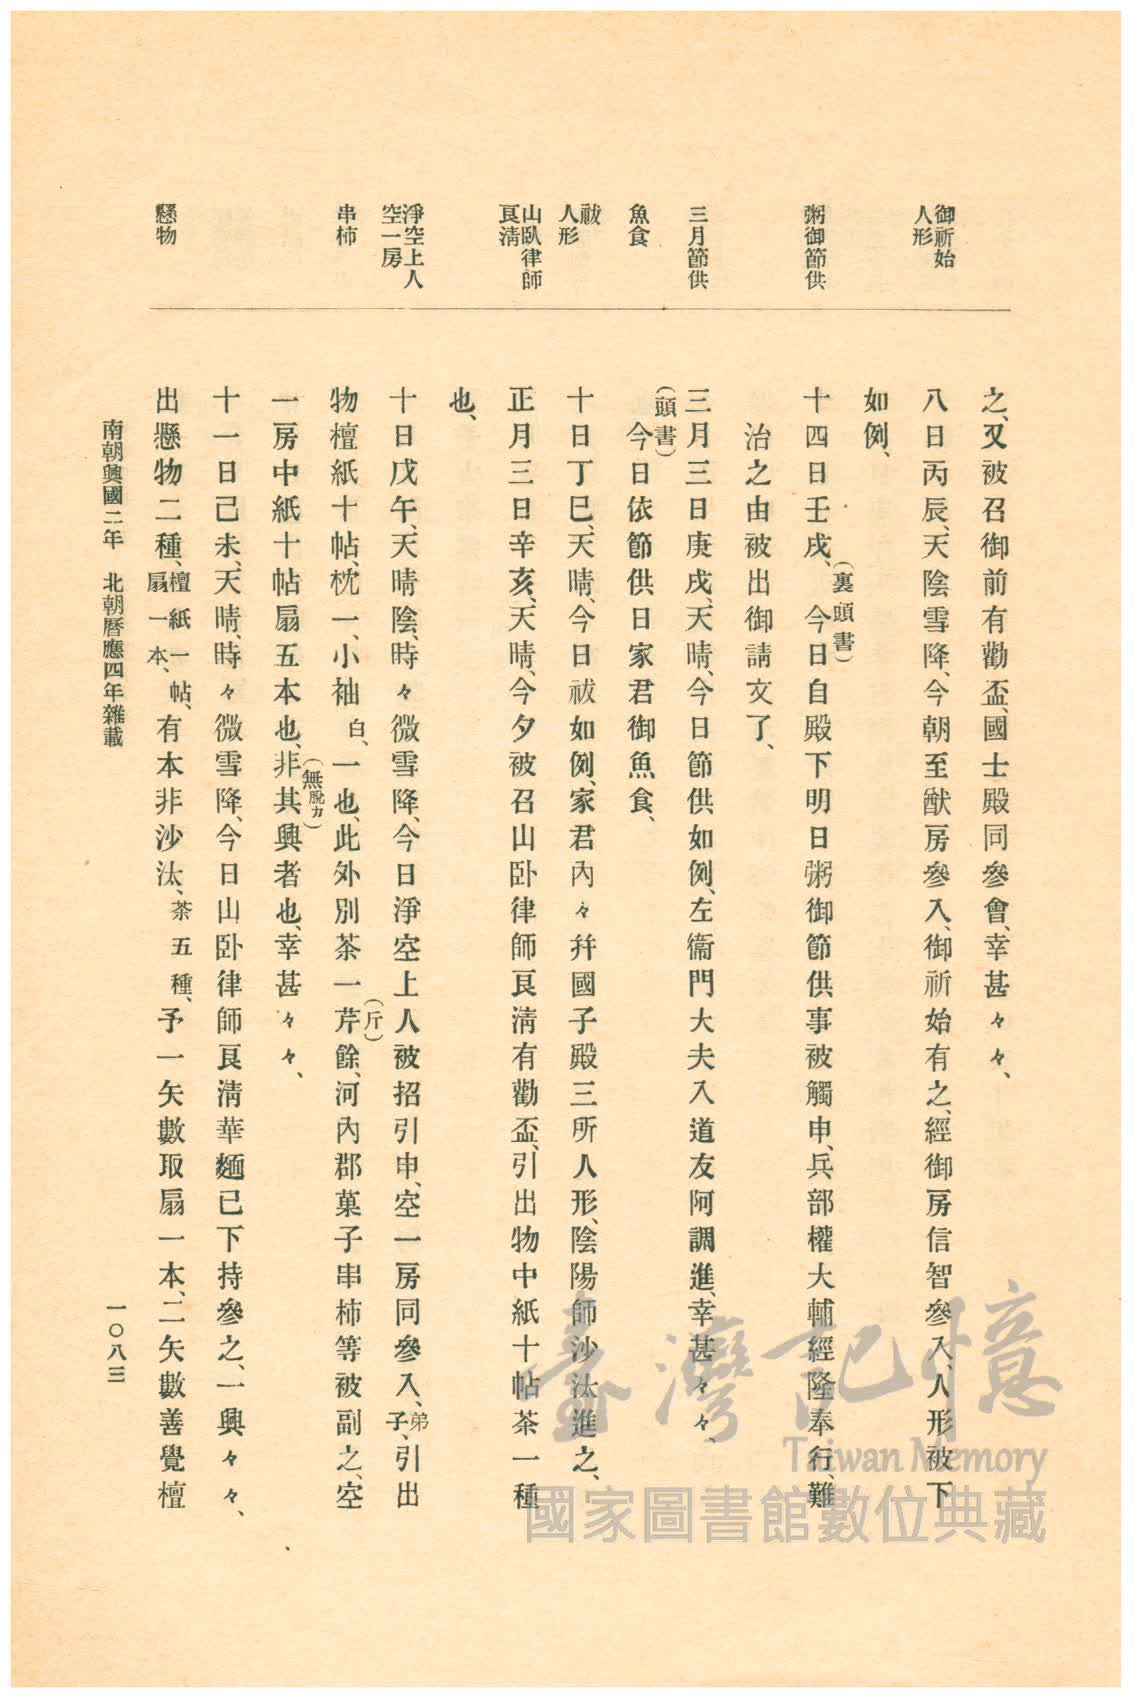 御祈始
人形
粥御節供
三月節供
魚食
祓
人形
山臥律師
良淸
淨空上人
空一房
串柿
懸物
之、又被召御前有勸盃、國士殿同參會、幸甚々々、
八日丙辰、天陰雪降、今朝至猷房參入、御祈始有之、經御房信智參入、人形被下
如例、
十四日壬戌、(裏頭書)今日自殿下明日粥御節供事被觸申、兵部權大輔經隆奉行、難
治之由被出御請文了、
三月三日庚戌、天晴、今日節供如例、左衞門大夫入道友阿調進、幸甚々々、
(頭書)今日依節供日家君御魚食、
十日丁巳、天晴、今日祓如例、家君內々幷國子殿三所人形、陰陽師沙汰進之、
正月三日辛亥、天晴、今夕被召山臥律師良淸有勸盃、引出物中紙十帖茶一種
也、
十日戊午、天晴陰、時々微雪降、今日淨空上人被招引申、空一房同參入、弟子、引出
物檀紙十帖、枕一、小袖白、一也、此外別茶一芹(斤)餘、河內郡菓子串柿等被副之、空
一房中紙十帖扇五本也、非(無脫カ)其興者也、幸甚々々、
十一日己未、天晴、時々微雪降、今日山臥律師良淸華麵已下持參之、一興々々、
出懸物二種、檀紙一帖、扇一本、有本非沙汰、茶五種、予一矢數取扇一本、二矢數善覺檀
南朝興國二年 北朝曆應四年雜載
一〇八三
臺灣記憶
Taiwan Memory
國家圖書館數位典藏